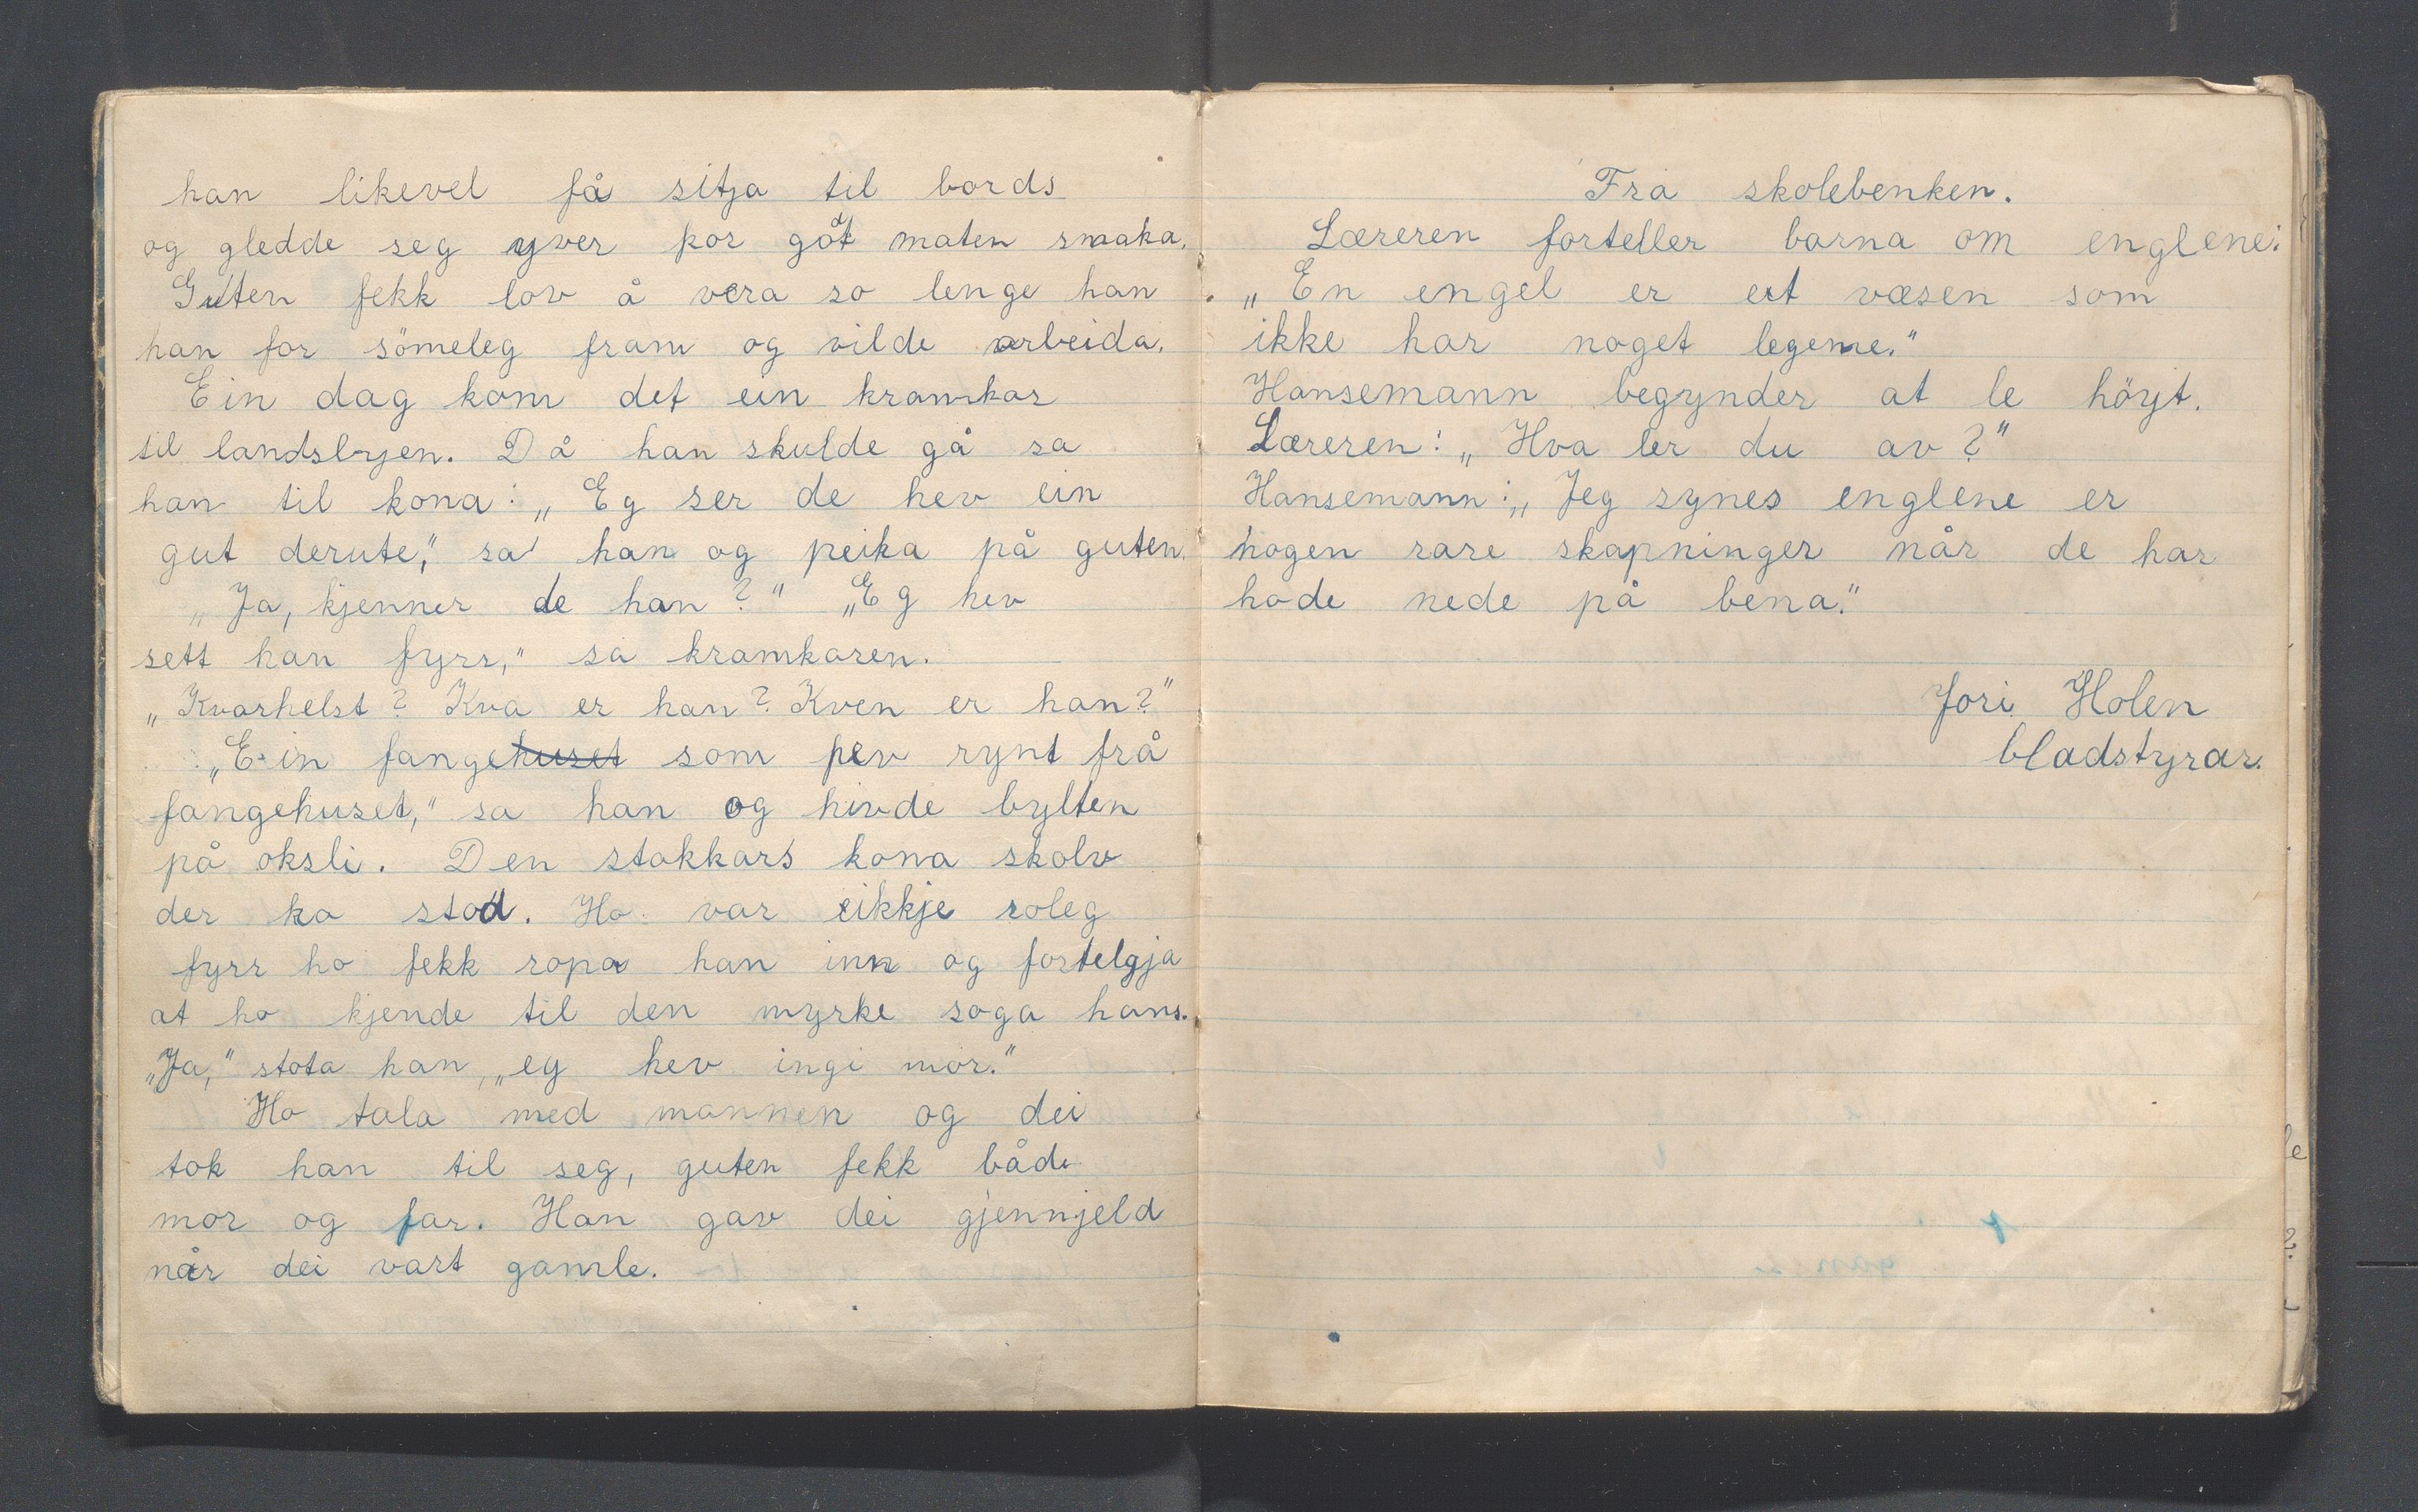 han likevel få sitja til bords
og gledde seg yver kor gött maten smaka.
Guten fekk lov å vera so lenge han
han for sömeleg fram og vilde arbeida.
Ein dag kom det ein kramkar
til landsbyen. Då han skulde gå sa
han til kona: „Eg ser de hev ein
gut derute," sa han og peika på guten.
„Ja, kjenner de han?" „Eg hev
sett han fyrr," sa kramkaren.
„Kvarhelst? Kva er han? Kven er han?"
„Ein fangehuset som hev rynt frå
fangehuset," sa han og hivde bylten
på oksli. Den stakkars kona skolv
der ho stod. Ho var eikkje roleg
fyrr ho fekk ropa han inn og fortelgja
at ho kjende til den myrke soga hans.
„Ja," stota han, „eg hev ingi mor."
Ho tala med mannen og dei
tok han til seg, guten fekk både
mor og far. Han gav dei gjennjeld
når dei vart gamle.
Fra skolebenken.
Læreren forteller barna om englene:
„En engel er et væsen som
ikke har noget legeme."
Hansemann begynder at le höyt.
Læreren: „Hva ler du av?"
Hansemann: „Jeg synes englene er
nogen rare skapninger når de har
hode nede på bena."
Jori Holen
bladstyrar.